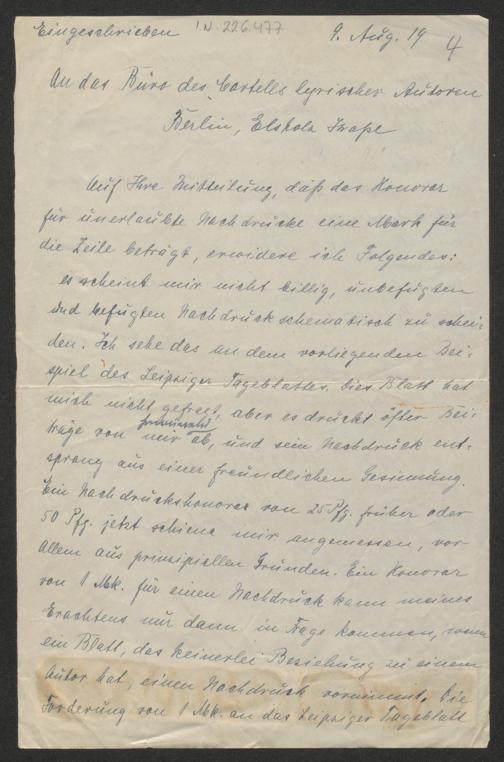 Eingeschrieben I.N. 226.477 9. Aug. 19 4
An das Büro des Cartells lyrischer Autoren
Berlin, Elsholz
Auf Ihre Mitteilung, daß das Honorar
für unerlaubte Nachdrucke eine Mark für
die Zeile beträgt, erwidere ich Folgendes:
es scheint mir nicht billig, unbefugten
und befugten Nachdruck schematisch zu schei-
den. Ich sehe das an dem vorliegenden Bei-
spiel des Leipziger Tageblattes. Dies Blatt hat
mich nicht gefragt, aber es druckt öfter Bei-
träge von mir ab, und sein Nachdruck ent-
sprang aus einer freundlichen Gesinnung.
Ein Nachdruckshonorar von 25 Pfg. früher oder
50 Pfg. jetzt schiene mir angemessen, vor
Allem aus prinzipiellen Gründen. Ein Honorar
von 1 Mk. für einen Nachdruck kann meines
Erachtens nur dann in Frage kommen, wenn
ein Blatt, das keinerlei Beziehung zu einem
Autor hat, einen Nachdruck vornimmt. Die
Forderung von 1 Mk. an das Leipziger Tageblatt